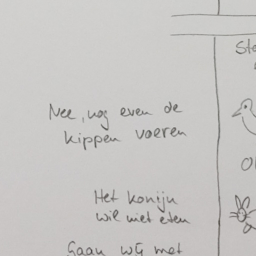 Ste
Nee, nog even de
kippen voeren
Het konijn
wil niet eten
Gaan wij met